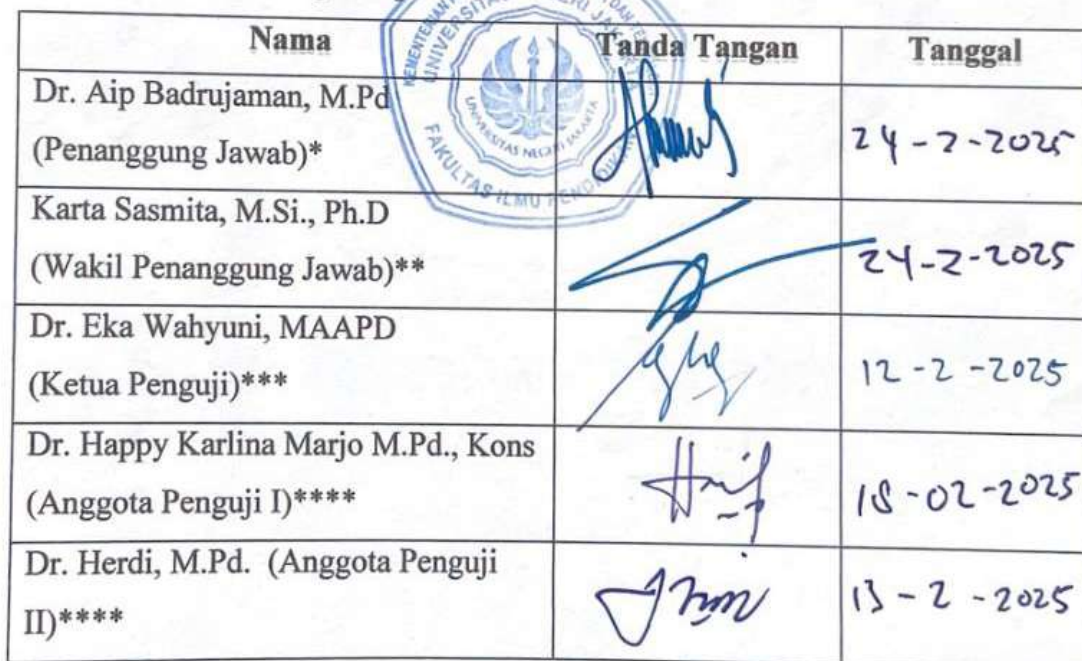 Nama Tanda Tangan Tanggal
Dr. Aip Badrujaman, M.Pd
(Penanggung Jawab)* 24-2-2025
Karta Sasmita, M.Si., Ph.D
(Wakil Penanggung Jawab)** 24-2-2025
Dr. Eka Wahyuni, MAAPD
(Ketua Penguji)*** 12-2-2025
Dr. Happy Karlina Marjo M.Pd., Kons
(Anggota Penguji I)**** 18-02-2025
Dr. Herdi, M.Pd. (Anggota Penguji
II)**** 13-2-2025
UNIVERSITAS NEGERI JAKARTA
FAKULTAS ILMU PENDIDIKAN